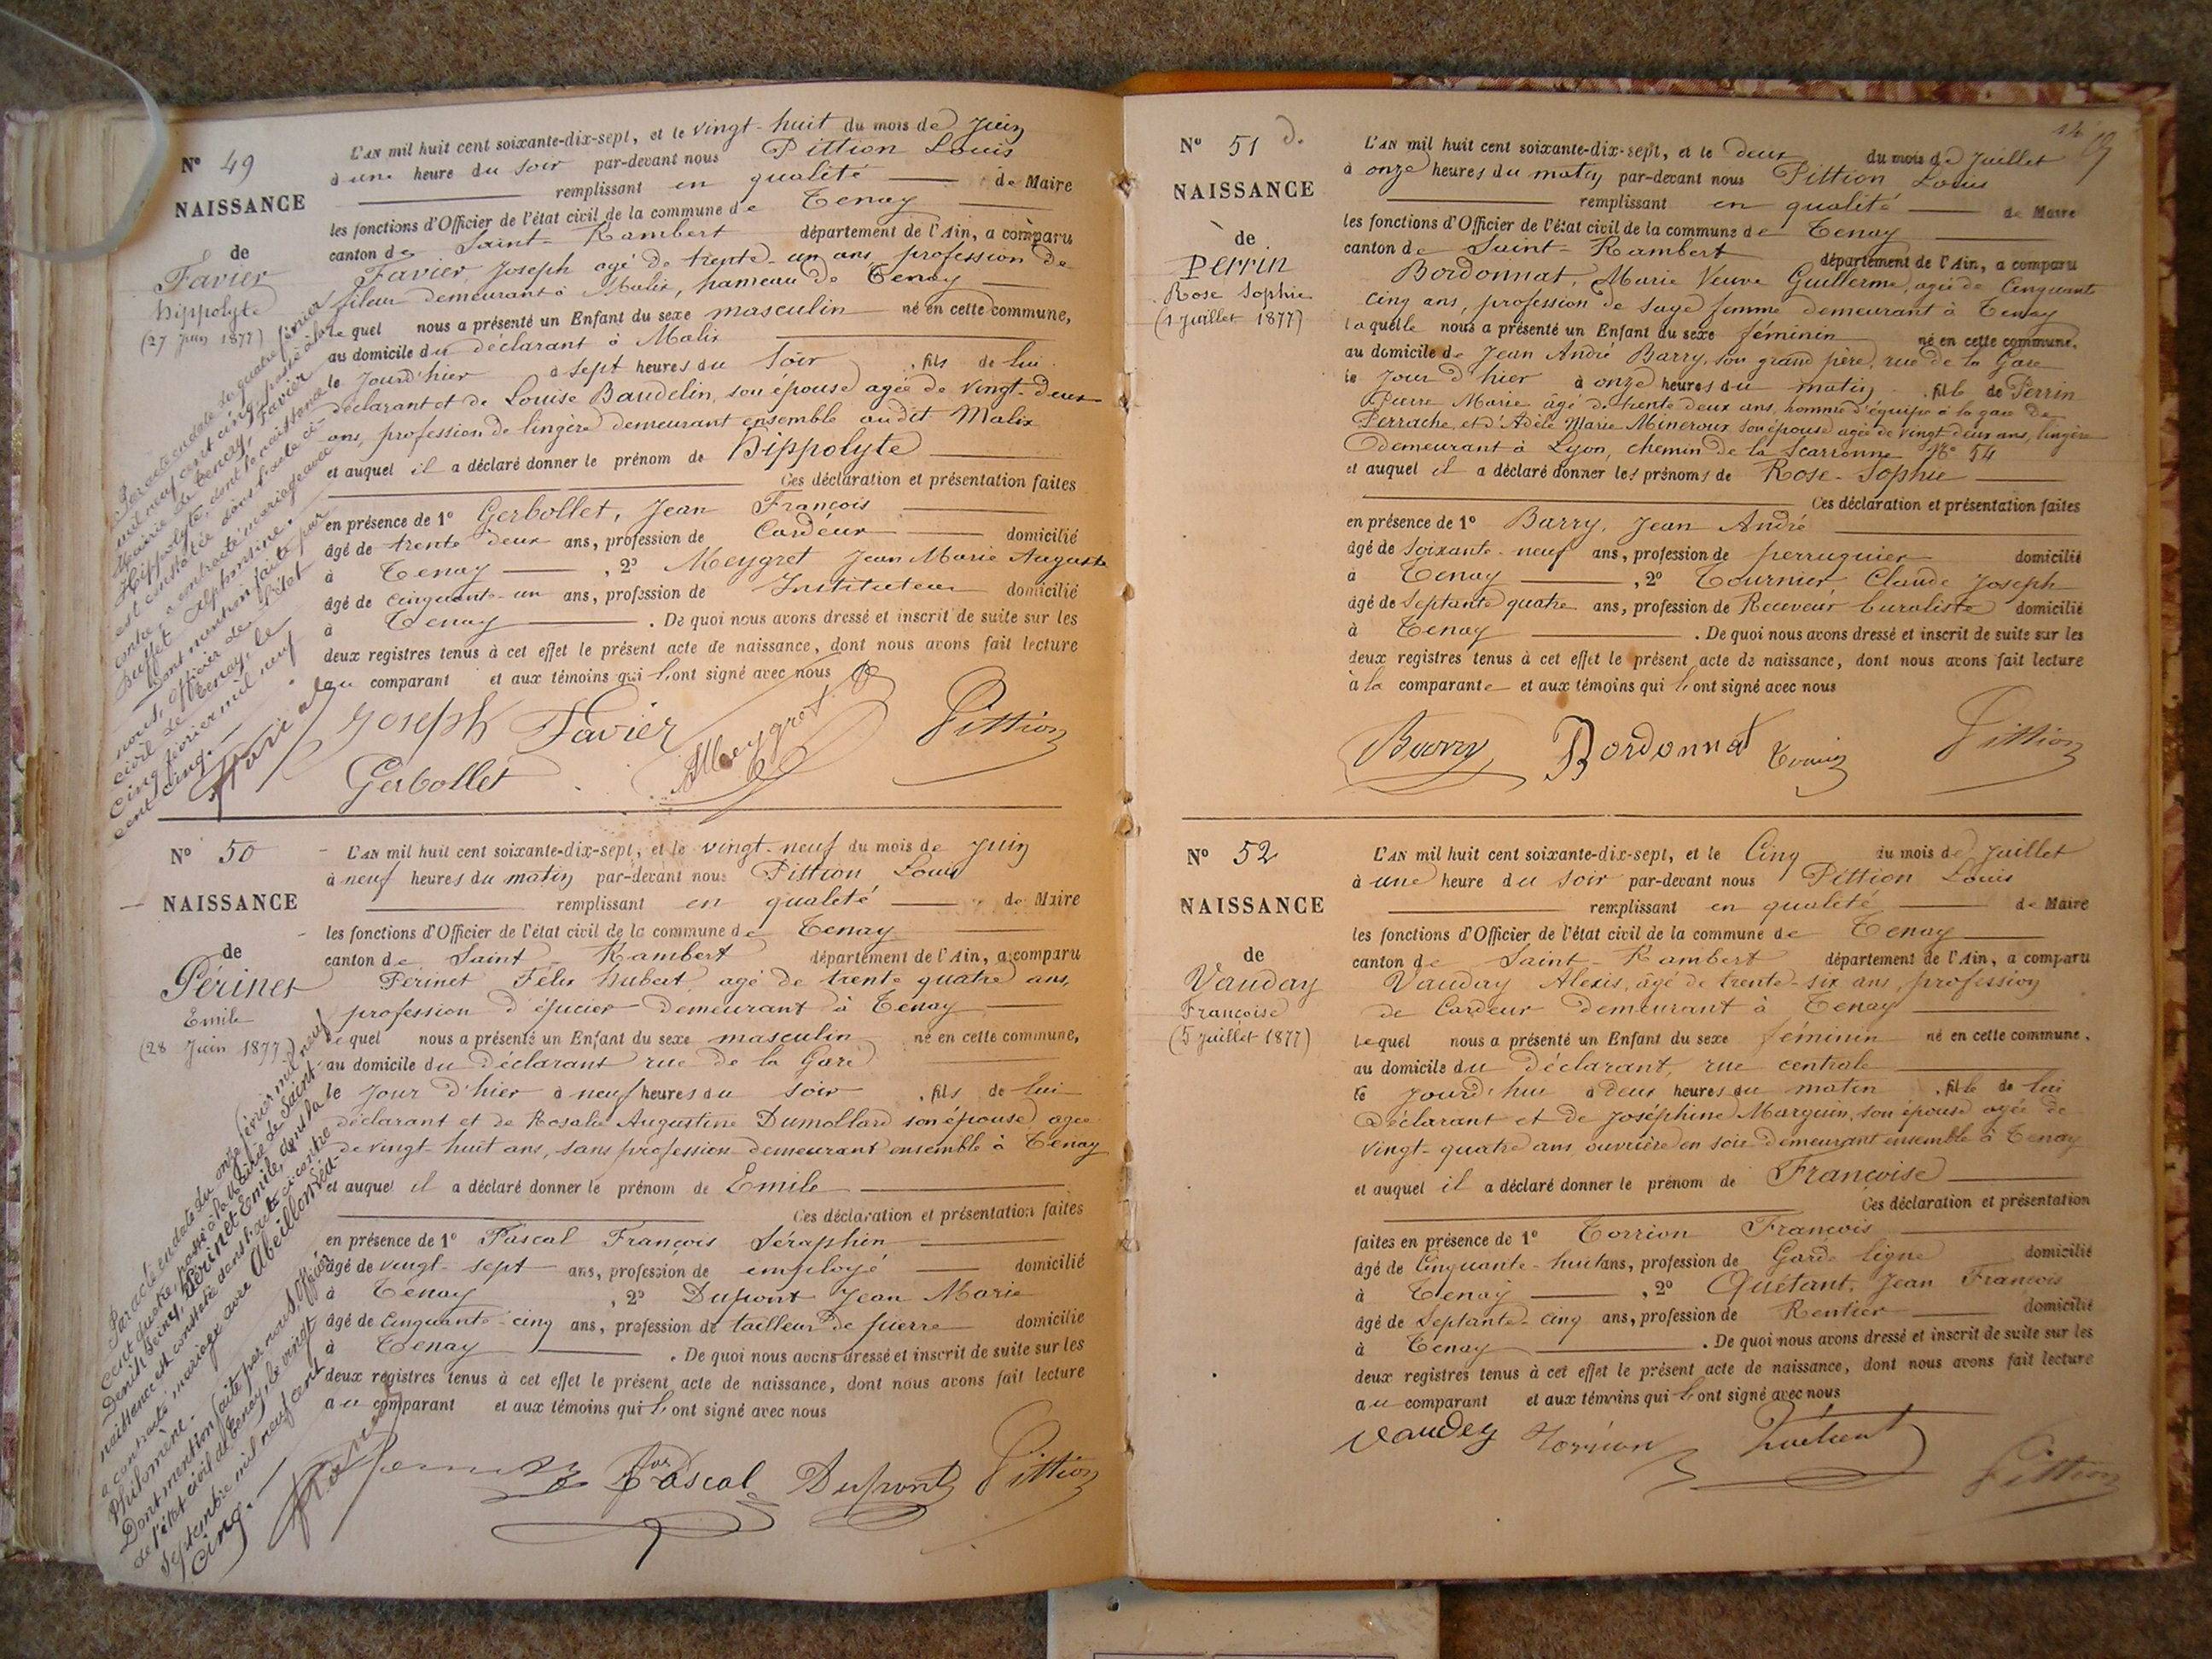 N° 49
NAISSANCE
de
Favier
Hippolyte
(27 Juin 1877)
L'AN mil huit cent soixante-dix-sept, et le vingt-huit du mois de Juin
à une heure du soir par-devant nous Pittion Louis
remplissant en qualité de Maire
les fonctions d'Officier de l'état civil de la commune de Tenay
canton de Saint-Rambert département de l'Ain, a comparu
Favier Joseph agé de trente-un ans, profession de
fileur demeurant à Malix, hameau de Tenay
lequel nous a présenté un Enfant du sexe masculin né en cette commune,
au domicile du déclarant à Malix
le Jour d'hier à sept heures du soir, fils de lui
déclarant et de Louise Baudelin, son épouse agée de vingt-deux
ans, profession de lingère demeurant ensemble audit Malix
et auquel il a déclaré donner le prénom de Hippolyte
Ces déclaration et présentation faites
en présence de 1° Gerbollet, Jean François
âgé de trente deux ans, profession de Cardeur domicilié
à Tenay, 2° Meygret Jean Marie Auguste
âgé de cinquante-un ans, profession de Instituteur domicilié
à Tenay. De quoi nous avons dressé et inscrit de suite sur les
deux registres tenus à cet effet le présent acte de naissance, dont nous avons fait lecture
au comparant et aux témoins qui l'ont signé avec nous
Joseph Favier Meygret Pittion
Gerbollet
Par acte en date du quatre février
mil neuf cent cinq, passé à la
Mairie de Tenay, Favier
Hippolyte, dont la naissance
est constatée dans l'acte ci-
contre, a contracté mariage avec
Buffet Alphonsine.
Dont mention faite par
nous, officier de l'état
civil de Tenay, le
cinq février mil neuf
cent cinq.
N° 50
NAISSANCE
de
Périnet
Emile
(28 Juin 1877)
L'AN mil huit cent soixante-dix-sept, et le vingt-neuf du mois de Juin
à neuf heures du matin par-devant nous Pittion Louis
remplissant en qualité de Maire
les fonctions d'Officier de l'état civil de la commune de Tenay
canton de Saint-Rambert département de l'Ain, a comparu
Périnet Félix Hubert agé de trente quatre ans,
profession d'épicier demeurant à Tenay
lequel nous a présenté un Enfant du sexe masculin né en cette commune,
au domicile du Déclarant rue de la Gare
le Jour d'hier à neuf heures du soir, fils de lui
déclarant et de Rosalie Augustine Dumollard son épouse agée
de vingt-huit ans, sans profession demeurant ensemble à Tenay
et auquel il a déclaré donner le prénom de Emile
Ces déclaration et présentation faites
en présence de 1° Pascal François Séraphin
âgé de vingt-sept ans, profession de employé domicilié
à Tenay, 2° Dupont Jean Marie
âgé de Cinquante-cinq ans, profession de tailleur de pierre domicilié
à Tenay. De quoi nous avons dressé et inscrit de suite sur les
deux registres tenus à cet effet le présent acte de naissance, dont nous avons fait lecture
au comparant et aux témoins qui l'ont signé avec nous
Pascal Dupont Pittion
Par acte en date du onze février mil neuf
cent quatre, passé à la Mairie de Saint-
Denis Perinet Emile, dont la
naissance est constatée dans l'acte ci-contre
a contracté mariage avec Abeillon
Philomène.
Dont mention faite par nous, officier
de l'état civil de Tenay, le vingt
Septembre mil neuf cent
cinq.
N° 51
NAISSANCE
de
Perrin
Rose Sophie
(1 Juillet 1877)
L'AN mil huit cent soixante-dix-sept, et le deux du mois de Juillet
à onze heures du matin par-devant nous Pittion Louis
remplissant en qualité de Maire
les fonctions d'Officier de l'état civil de la commune de Tenay
canton de Saint-Rambert département de l'Ain, a comparu
Bordonnat, Marie Veuve Guillerme, agée de Cinquante
cinq ans, profession de sage femme demeurant à Tenay
laquelle nous a présenté un Enfant du sexe féminin né en cette commune.
au domicile de Jean André Barry, son grand père, rue de la Gare
le Jour d'hier à onze heures du matin, fille de Perrin
Pierre Marie âgé de trente deux ans, homme d'équipe à la gare de
Perrache, et d'Adèle Marie Mineroux son épouse agée de vingt deux ans, lingère
demeurant à Lyon, chemin de la Scarronne N° 54
et auquel il a déclaré donner les prénoms de Rose-Sophie
Ces déclaration et présentation faites
en présence de 1° Barry, Jean André
âgé de Soixante-neuf ans, profession de perruquier domicilié
à Tenay, 2° Tournier Claude Joseph
âgé de Septante quatre ans, profession de Receveur buraliste domicilié
à Tenay. De quoi nous avons dressé et inscrit de suite sur les
deux registres tenus à cet effet le présent acte de naissance, dont nous avons fait lecture
à la comparante et aux témoins qui l'ont signé avec nous
Barry Bordonnat Pittion
N° 52
NAISSANCE
de
Vauday
Françoise
(5 Juillet 1877)
L'AN mil huit cent soixante-dix-sept, et le Cinq du mois de Juillet
à une heure du soir par-devant nous Pittion Louis
remplissant en qualité de Maire
les fonctions d'Officier de l'état civil de la commune de Tenay
canton de Saint-Rambert département de l'Ain, a comparu
Vauday Alexis, âgé de trente-six ans, profession
de Cardeur demeurant à Tenay
lequel nous a présenté un Enfant du sexe féminin né en cette commune.
au domicile du Déclarant, rue centrale
le Jourd'hui à Deux heures du matin, fille de lui
Déclarant et de Joséphine Marguin, son épouse agée de
vingt-quatre ans ouvrière en soie demeurant ensemble à Tenay
et auquel il a déclaré donner le prénom de Françoise
Ces déclaration et présentation
faites en présence de 1° Torrion François
âgé de Cinquante-huit ans, profession de Garde ligne domicilié
à Tenay, 2° Quétant, Jean François
âgé de Septante-cinq ans, profession de Rentier domicilié
à Tenay. De quoi nous avons dressé et inscrit de suite sur les
deux registres tenus à cet effet le présent acte de naissance, dont nous avons fait lecture
au comparant et aux témoins qui l'ont signé avec nous
Vaudey Torrion Quétant Pittion